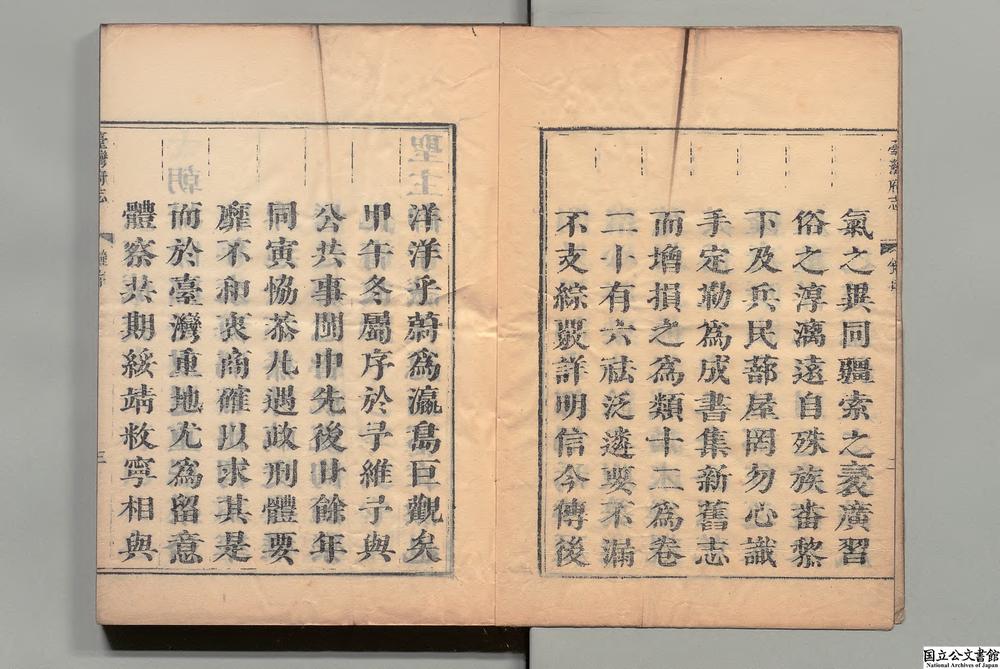 臺灣府志
氣之異同疆索之袤廣習
俗之淳漓遠自殊族番黎
下及兵民蔀屋罔勿心識
手定勒爲成書集新舊志
而增損之爲類十二爲卷
二十有六祛泛遴要不漏
不支綜嚴詳明信今傳後
洋洋乎蔚爲瀛島巨觀矣
甲午冬屬序於予維予與
公共事閩中先後廿餘年
同寅恊恭凡遇政刑體要
靡不和衷商確以求其是
而於臺灣重地尤爲留意
體察共期綏靖敉寧相與
臺灣府志
三
国立公文書館
National Archives of Japan